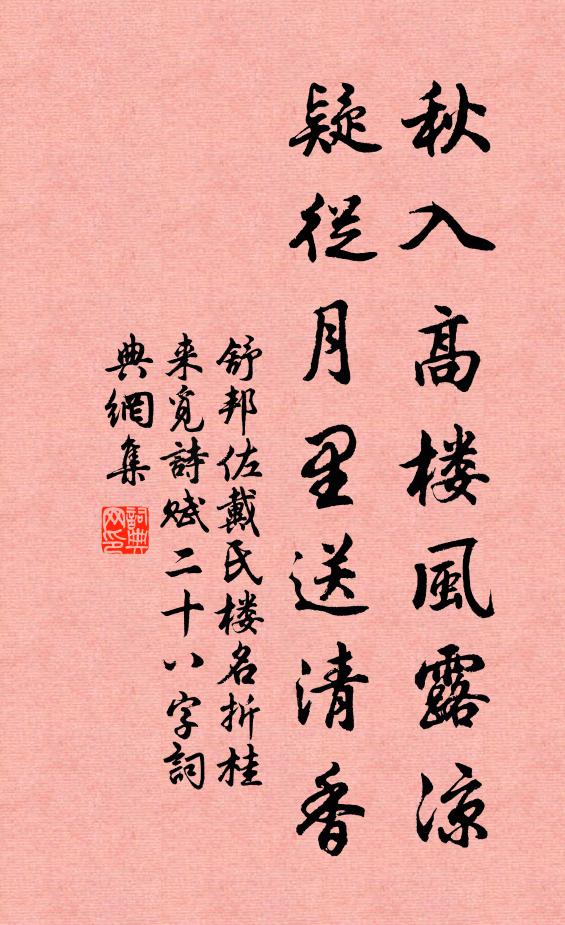 秋入髙楼風露凉
疑從月里送清香
舒邦佐戴氏楼名折桂
来覓詩赋二十八字詞
典網集
詞典网印